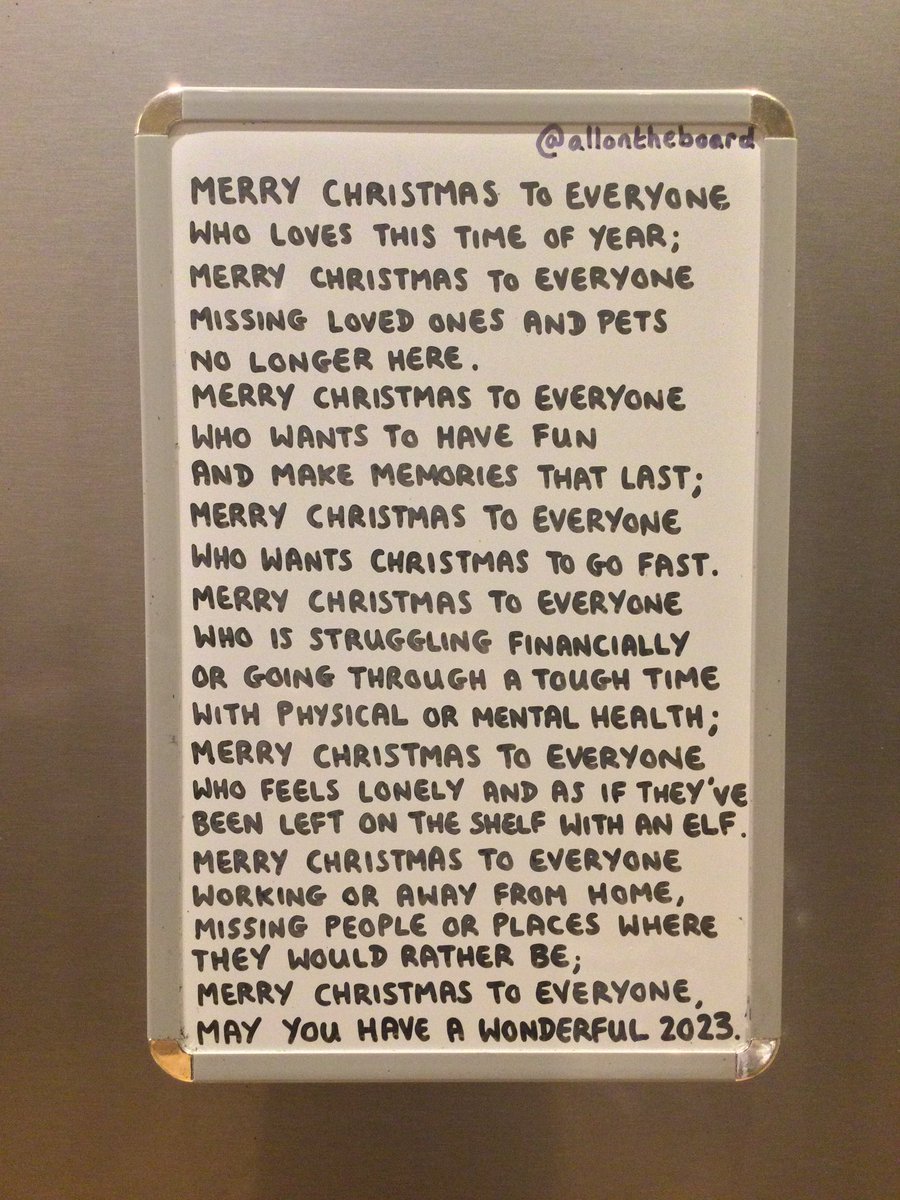 @allontheboard
MERRY CHRISTMAS TO EVERYONE
WHO LOVES THIS TIME OF YEAR;
MERRY CHRISTMAS TO EVERYONE
MISSING LOVED ONES AND PETS
NO LONGER HERE.
MERRY CHRISTMAS TO EVERYONE
WHO WANTS TO HAVE FUN
AND MAKE MEMORIES THAT LAST;
MERRY CHRISTMAS TO EVERYONE
WHO WANTS CHRISTMAS TO GO FAST.
MERRY CHRISTMAS TO EVERYONE
WHO IS STRUGGLING FINANCIALLY
OR GOING THROUGH A TOUGH TIME
WITH PHYSICAL OR MENTAL HEALTH;
MERRY CHRISTMAS TO EVERYONE
WHO FEELS LONELY AND AS IF THEY'VE
BEEN LEFT ON THE SHELF WITH AN ELF.
MERRY CHRISTMAS TO EVERYONE
WORKING OR AWAY FROM HOME,
MISSING PEOPLE OR PLACES WHERE
THEY WOULD RATHER BE;
MERRY CHRISTMAS TO EVERYONE,
MAY YOU HAVE A WONDERFUL 2023.